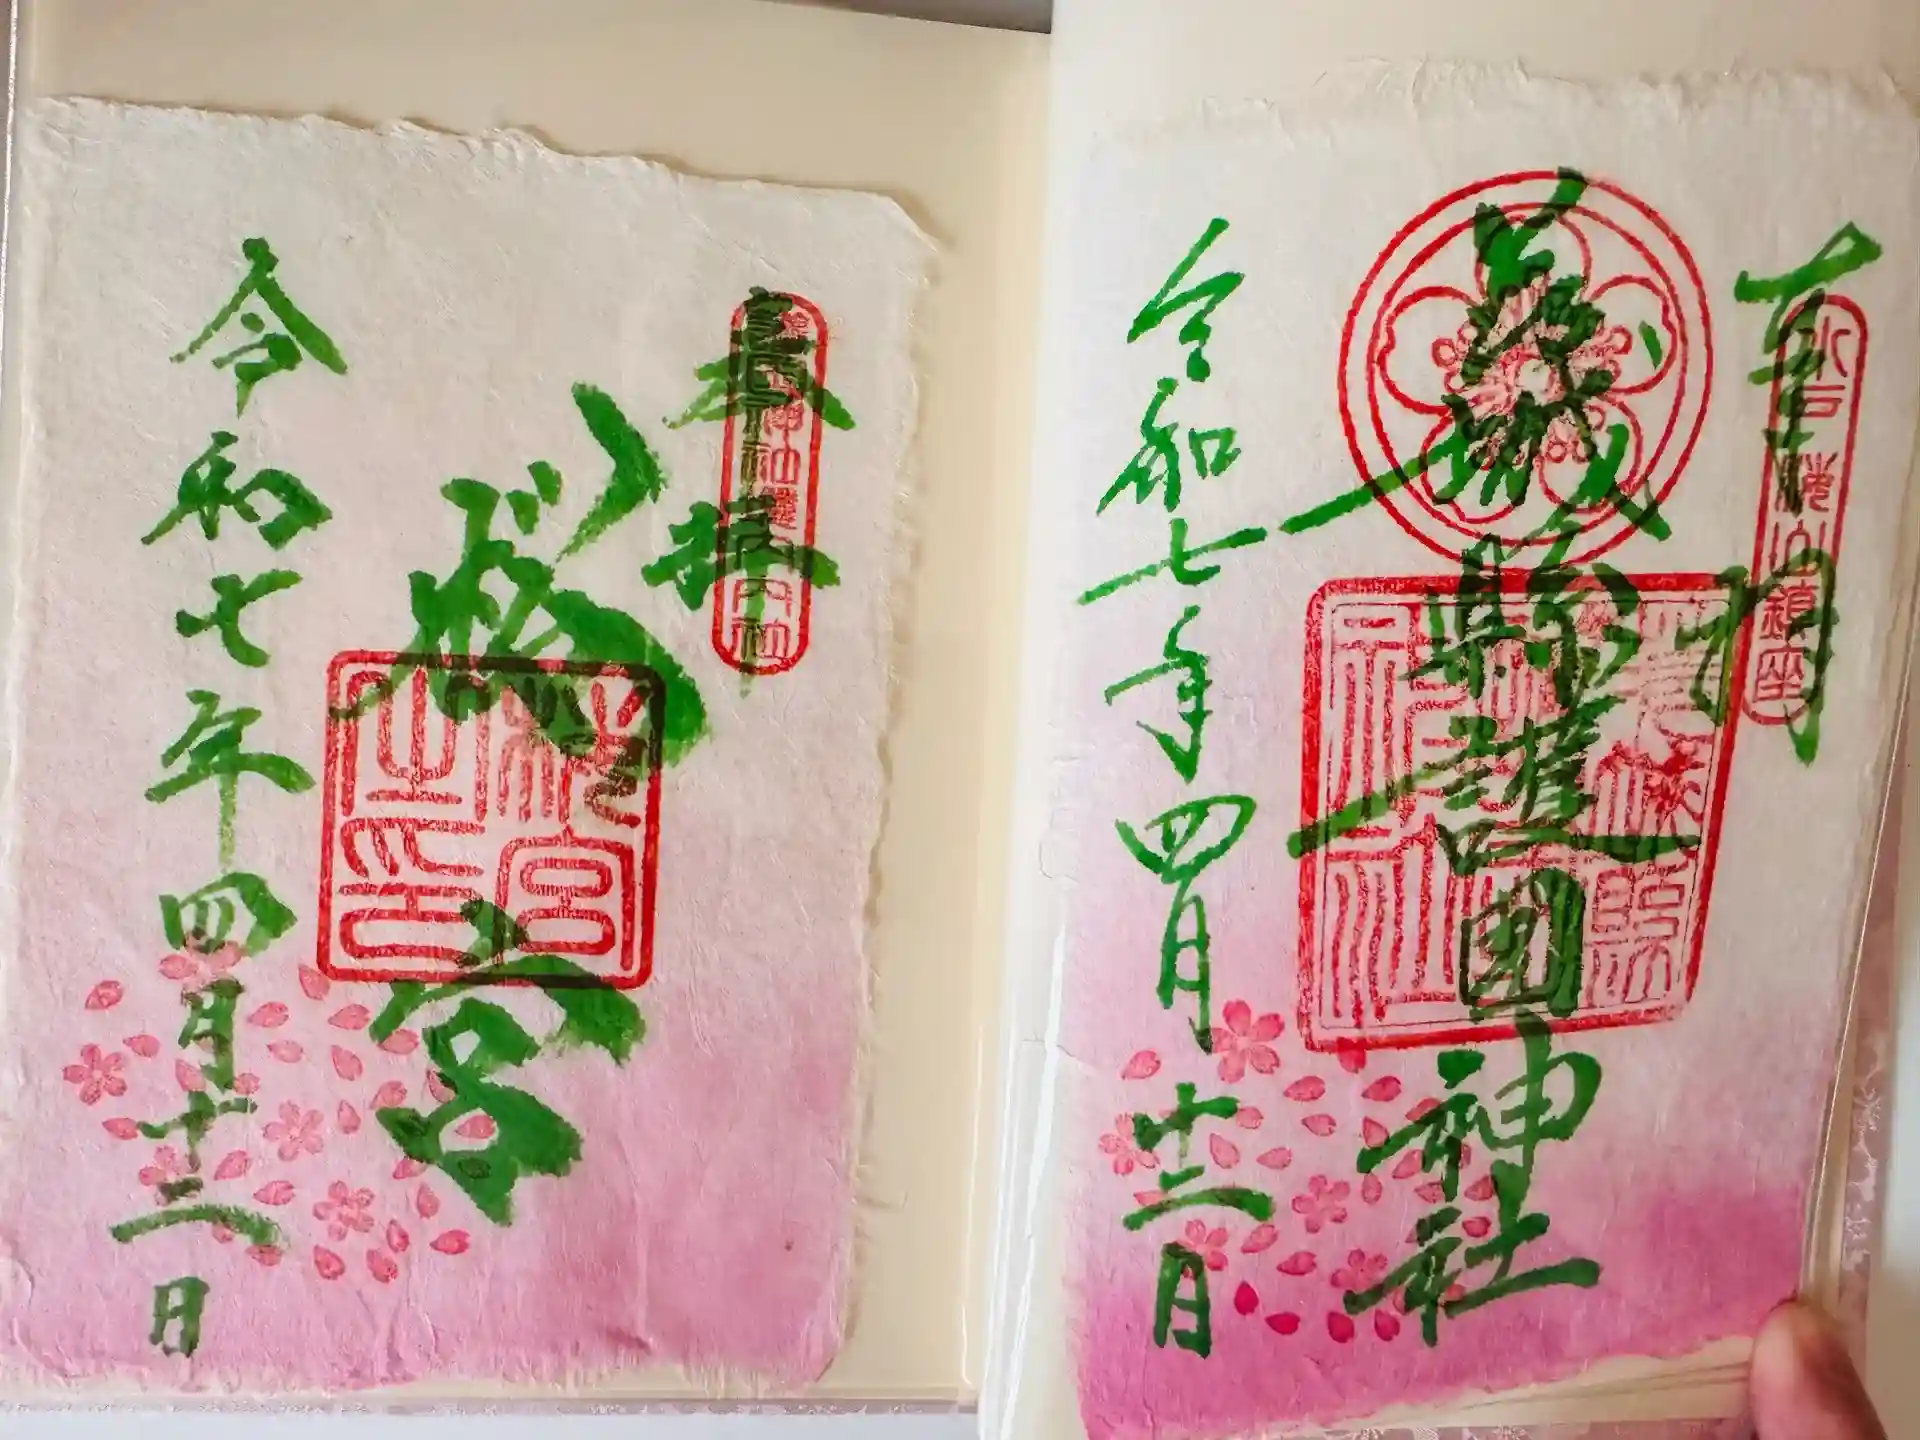 奉拝
水戸桜山鎮座
茨城縣護國神社
令和七年四月十二日
奉拝
桜宮
桜宮之印
令和七年四月十二日